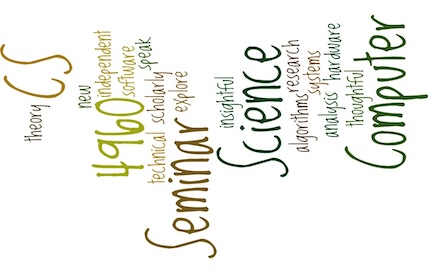 theory
CS
new
4960
independent
software
speak
technical
scholarly
Seminar
explore
insightful
Science
algorithms
research
systems
analysis
hardware
thoughtful
Computer